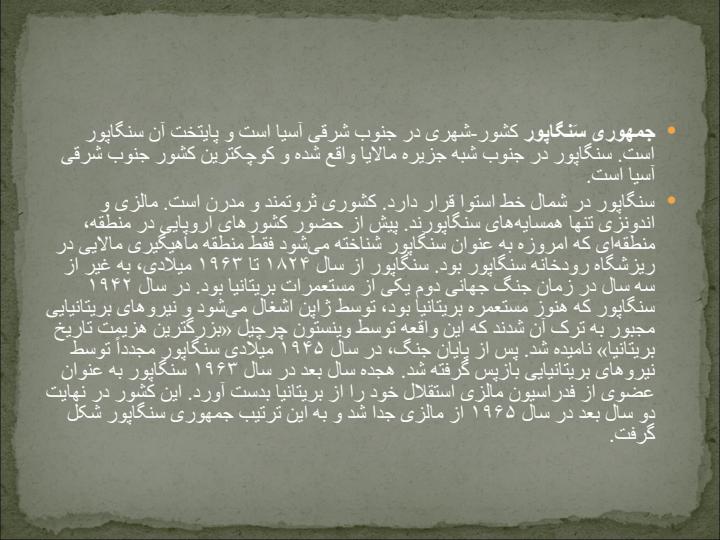 جمهوری سَنْگاپور کشور-شهری در جنوب شرقی آسیا است و پایتخت آن سنگاپور
است. سنگاپور در جنوب شبه جزیره مالایا واقع شده و کوچکترین کشور جنوب شرقی
آسیا است.
سنگاپور در شمال خط استوا قرار دارد. کشوری ثروتمند و مدرن است. مالزی و
اندونزی تنها همسایه‌های سنگاپورند. پیش از حضور کشورهای اروپایی در منطقه،
منطقه‌ای که امروزه به عنوان سنگاپور شناخته می‌شود فقط منطقه ماهیگیری مالایی در
ریزشگاه رودخانه سنگاپور بود. سنگاپور از سال ۱۸۲۴ تا ۱۹۶۳ میلادی، به غیر از
سه سال در زمان جنگ جهانی دوم یکی از مستعمرات بریتانیا بود. در سال ۱۹۴۲
سنگاپور که هنوز مستعمره بریتانیا بود، توسط ژاپن اشغال می‌شود و نیروهای بریتانیایی
مجبور به ترک آن شدند که این واقعه توسط وینستون چرچیل «بزرگترین هزیمت تاریخ
بریتانیا» نامیده شد. پس از پایان جنگ، در سال ۱۹۴۵ میلادی سنگاپور مجدداً توسط
نیروهای بریتانیایی بازپس گرفته شد. هجده سال بعد در سال ۱۹۶۳ سنگاپور به عنوان
عضوی از فدراسیون مالزی استقلال خود را از بریتانیا بدست آورد. این کشور در نهایت
دو سال بعد در سال ۱۹۶۵ از مالزی جدا شد و به این ترتیب جمهوری سنگاپور شکل
گرفت.